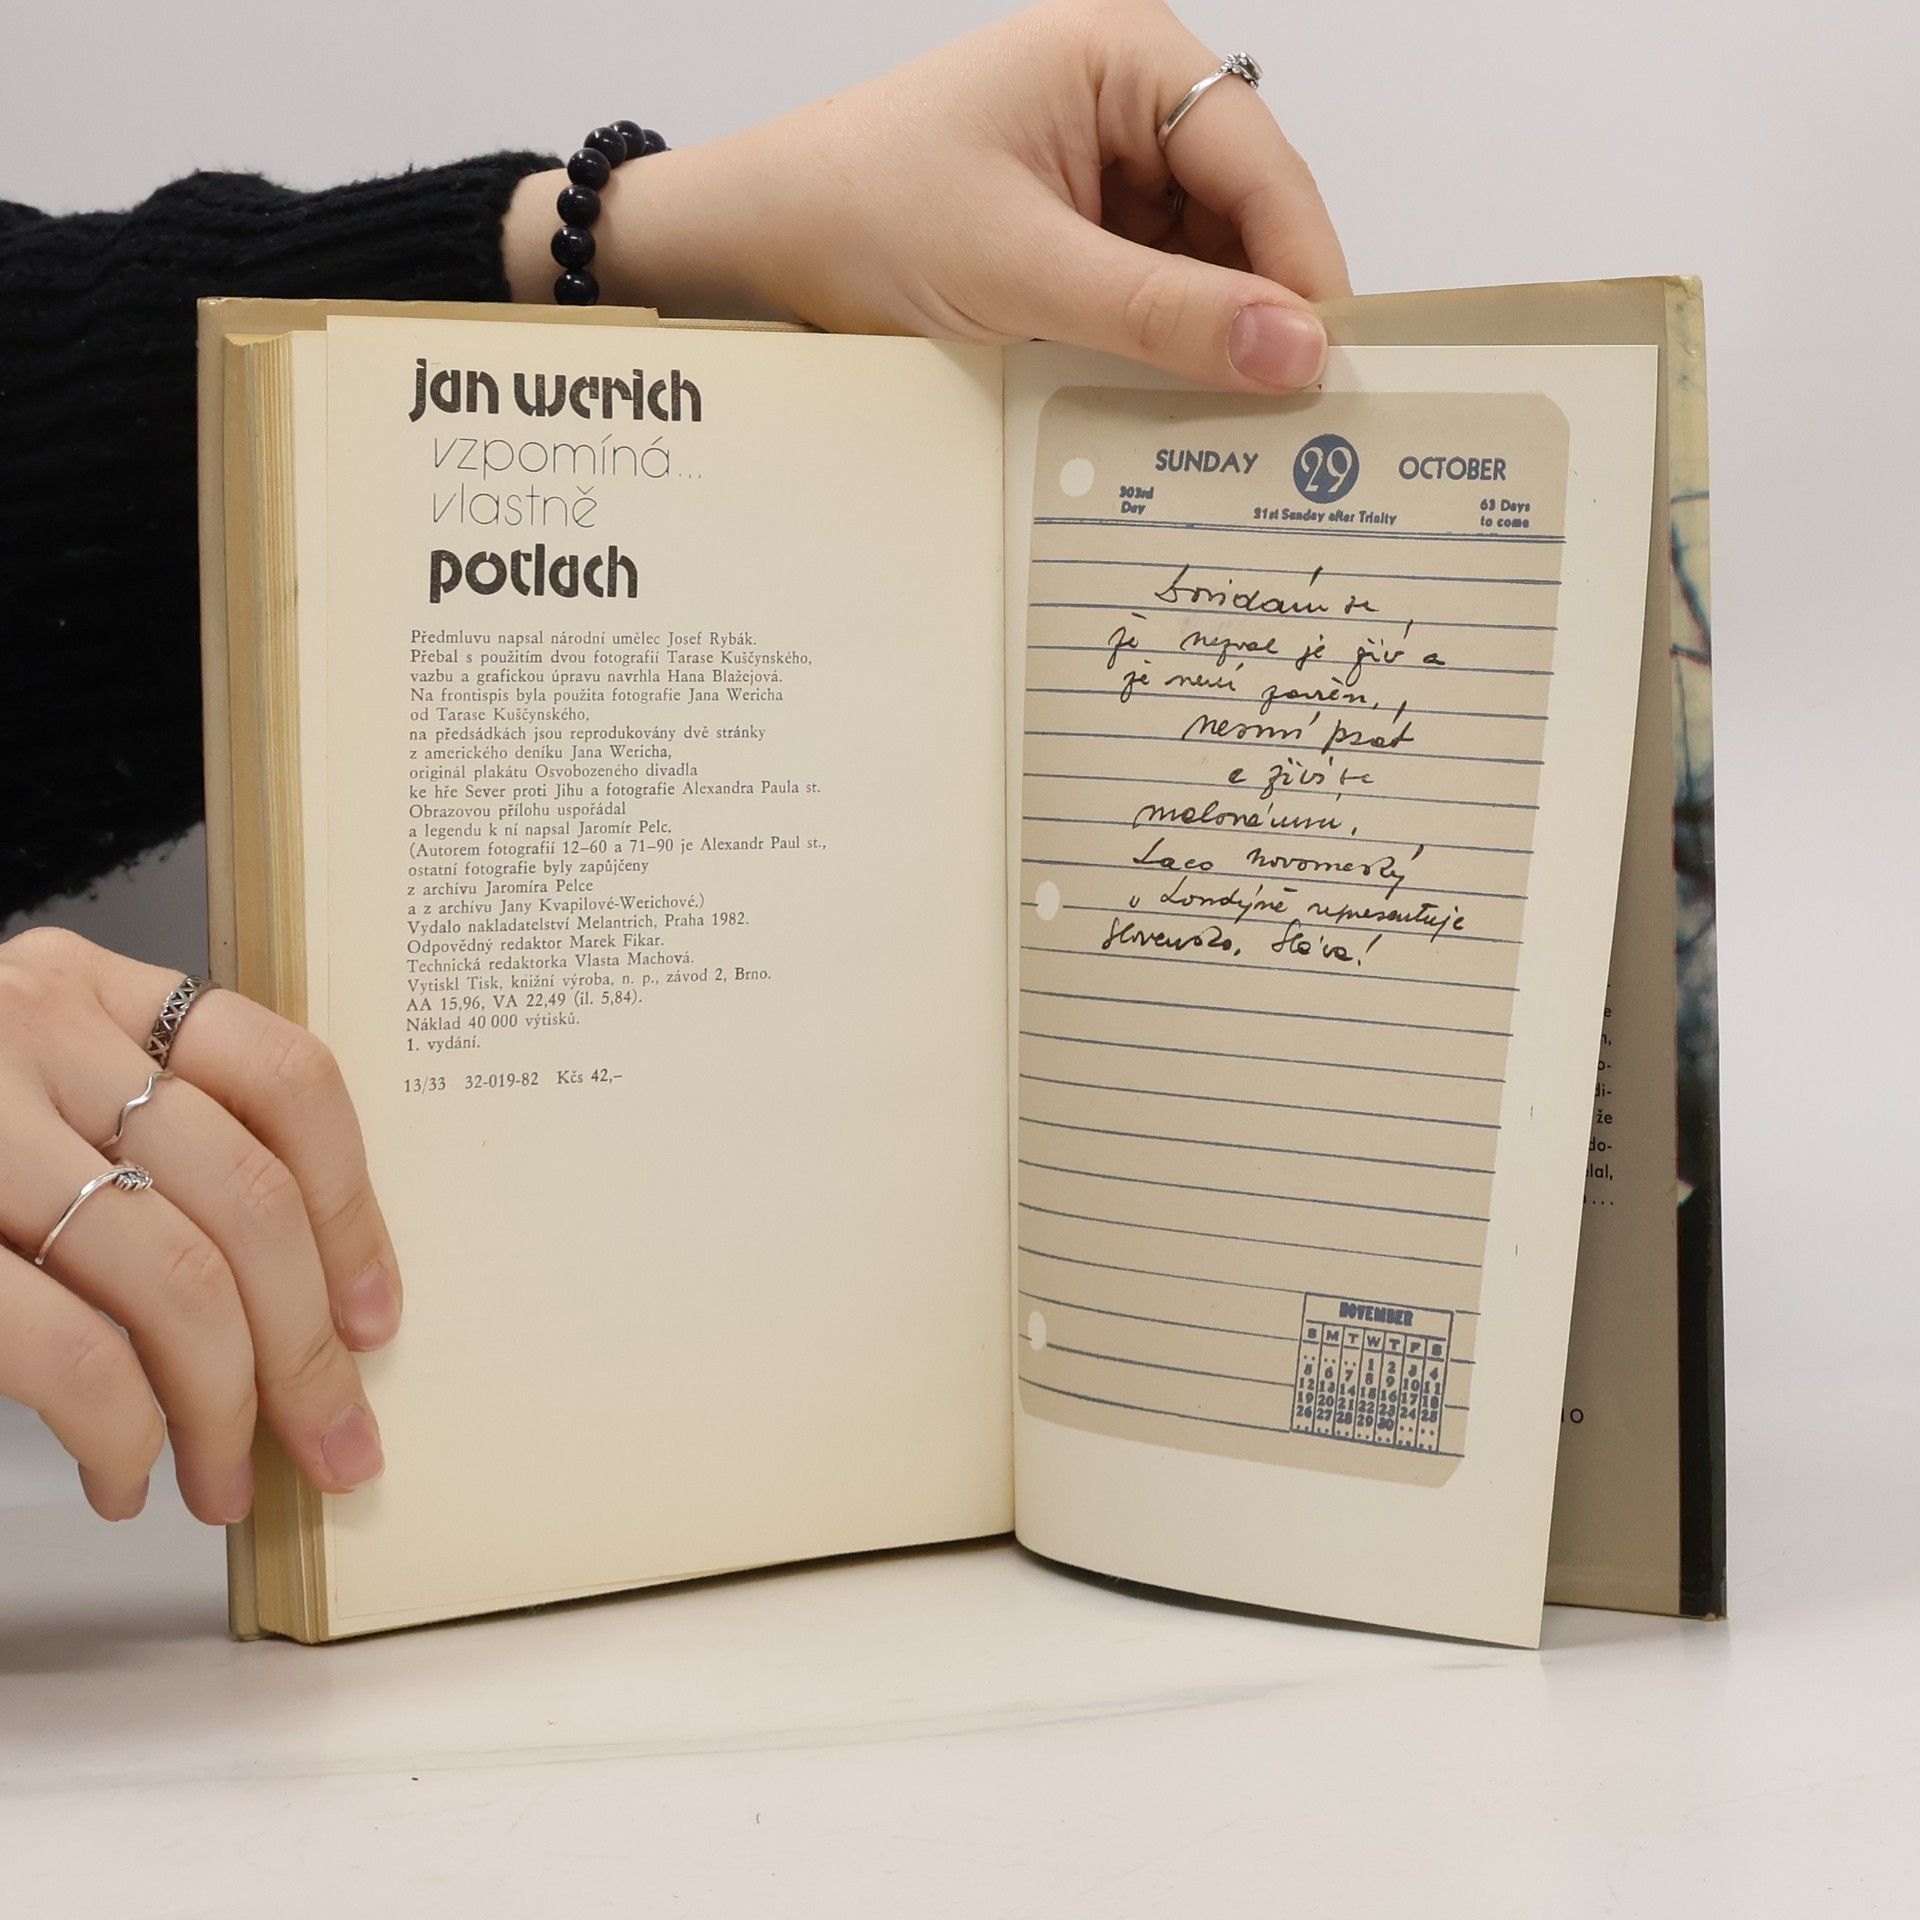 jan werich
vzpomíná...
vlastně
potlach
Předmluvu napsal národní umělec Josef Rybák.
Přebal s použitím dvou fotografií Tarase Kuščynského,
vazbu a grafickou úpravu navrhla Hana Blažejová.
Na frontispis byla použita fotografie Jana Wericha
od Tarase Kuščynského,
na předsádkách jsou reprodukovány dvě stránky
z amerického deníku Jana Wericha,
originál plakátu Osvobozeného divadla
ke hře Sever proti Jihu a fotografie Alexandra Paula st.
Obrazovou přílohu uspořádal
a legendu k ní napsal Jaromír Pelc.
(Autorem fotografií 12–60 a 71–90 je Alexandr Paul st.,
ostatní fotografie byly zapůjčeny
z archívu Jaromíra Pelce
a z archívu Jany Kvapilové-Werichové.)
Vydalo nakladatelství Melantrich, Praha 1982.
Odpovědný redaktor Marek Fikar.
Technická redaktorka Vlasta Machová.
Vytiskl Tisk, knižní výroba, n. p., závod 2, Brno.
AA 15,96, VA 22,49 (il. 5,84).
Náklad 40 000 výtisků.
1. vydání.
13/33 32-019-82 Kčs 42,–
SUNDAY 29 OCTOBER
303rd Day 21st Sunday after Trinity 63 Days to come
Dovidám se,
že nezval je živ a
že není zavřen,
nesmí psát
a živí se
malováním.
Laco Novomeský
v Londýně representuje
Slovensko. Sláva!
NOVEMBER
S M T W T F S
.. .. .. 1 2 3 4
5 6 7 8 9 10 11
12 13 14 15 16 17 18
19 20 21 22 23 24 25
26 27 28 29 30 .. ..
že
do-
lal,
...